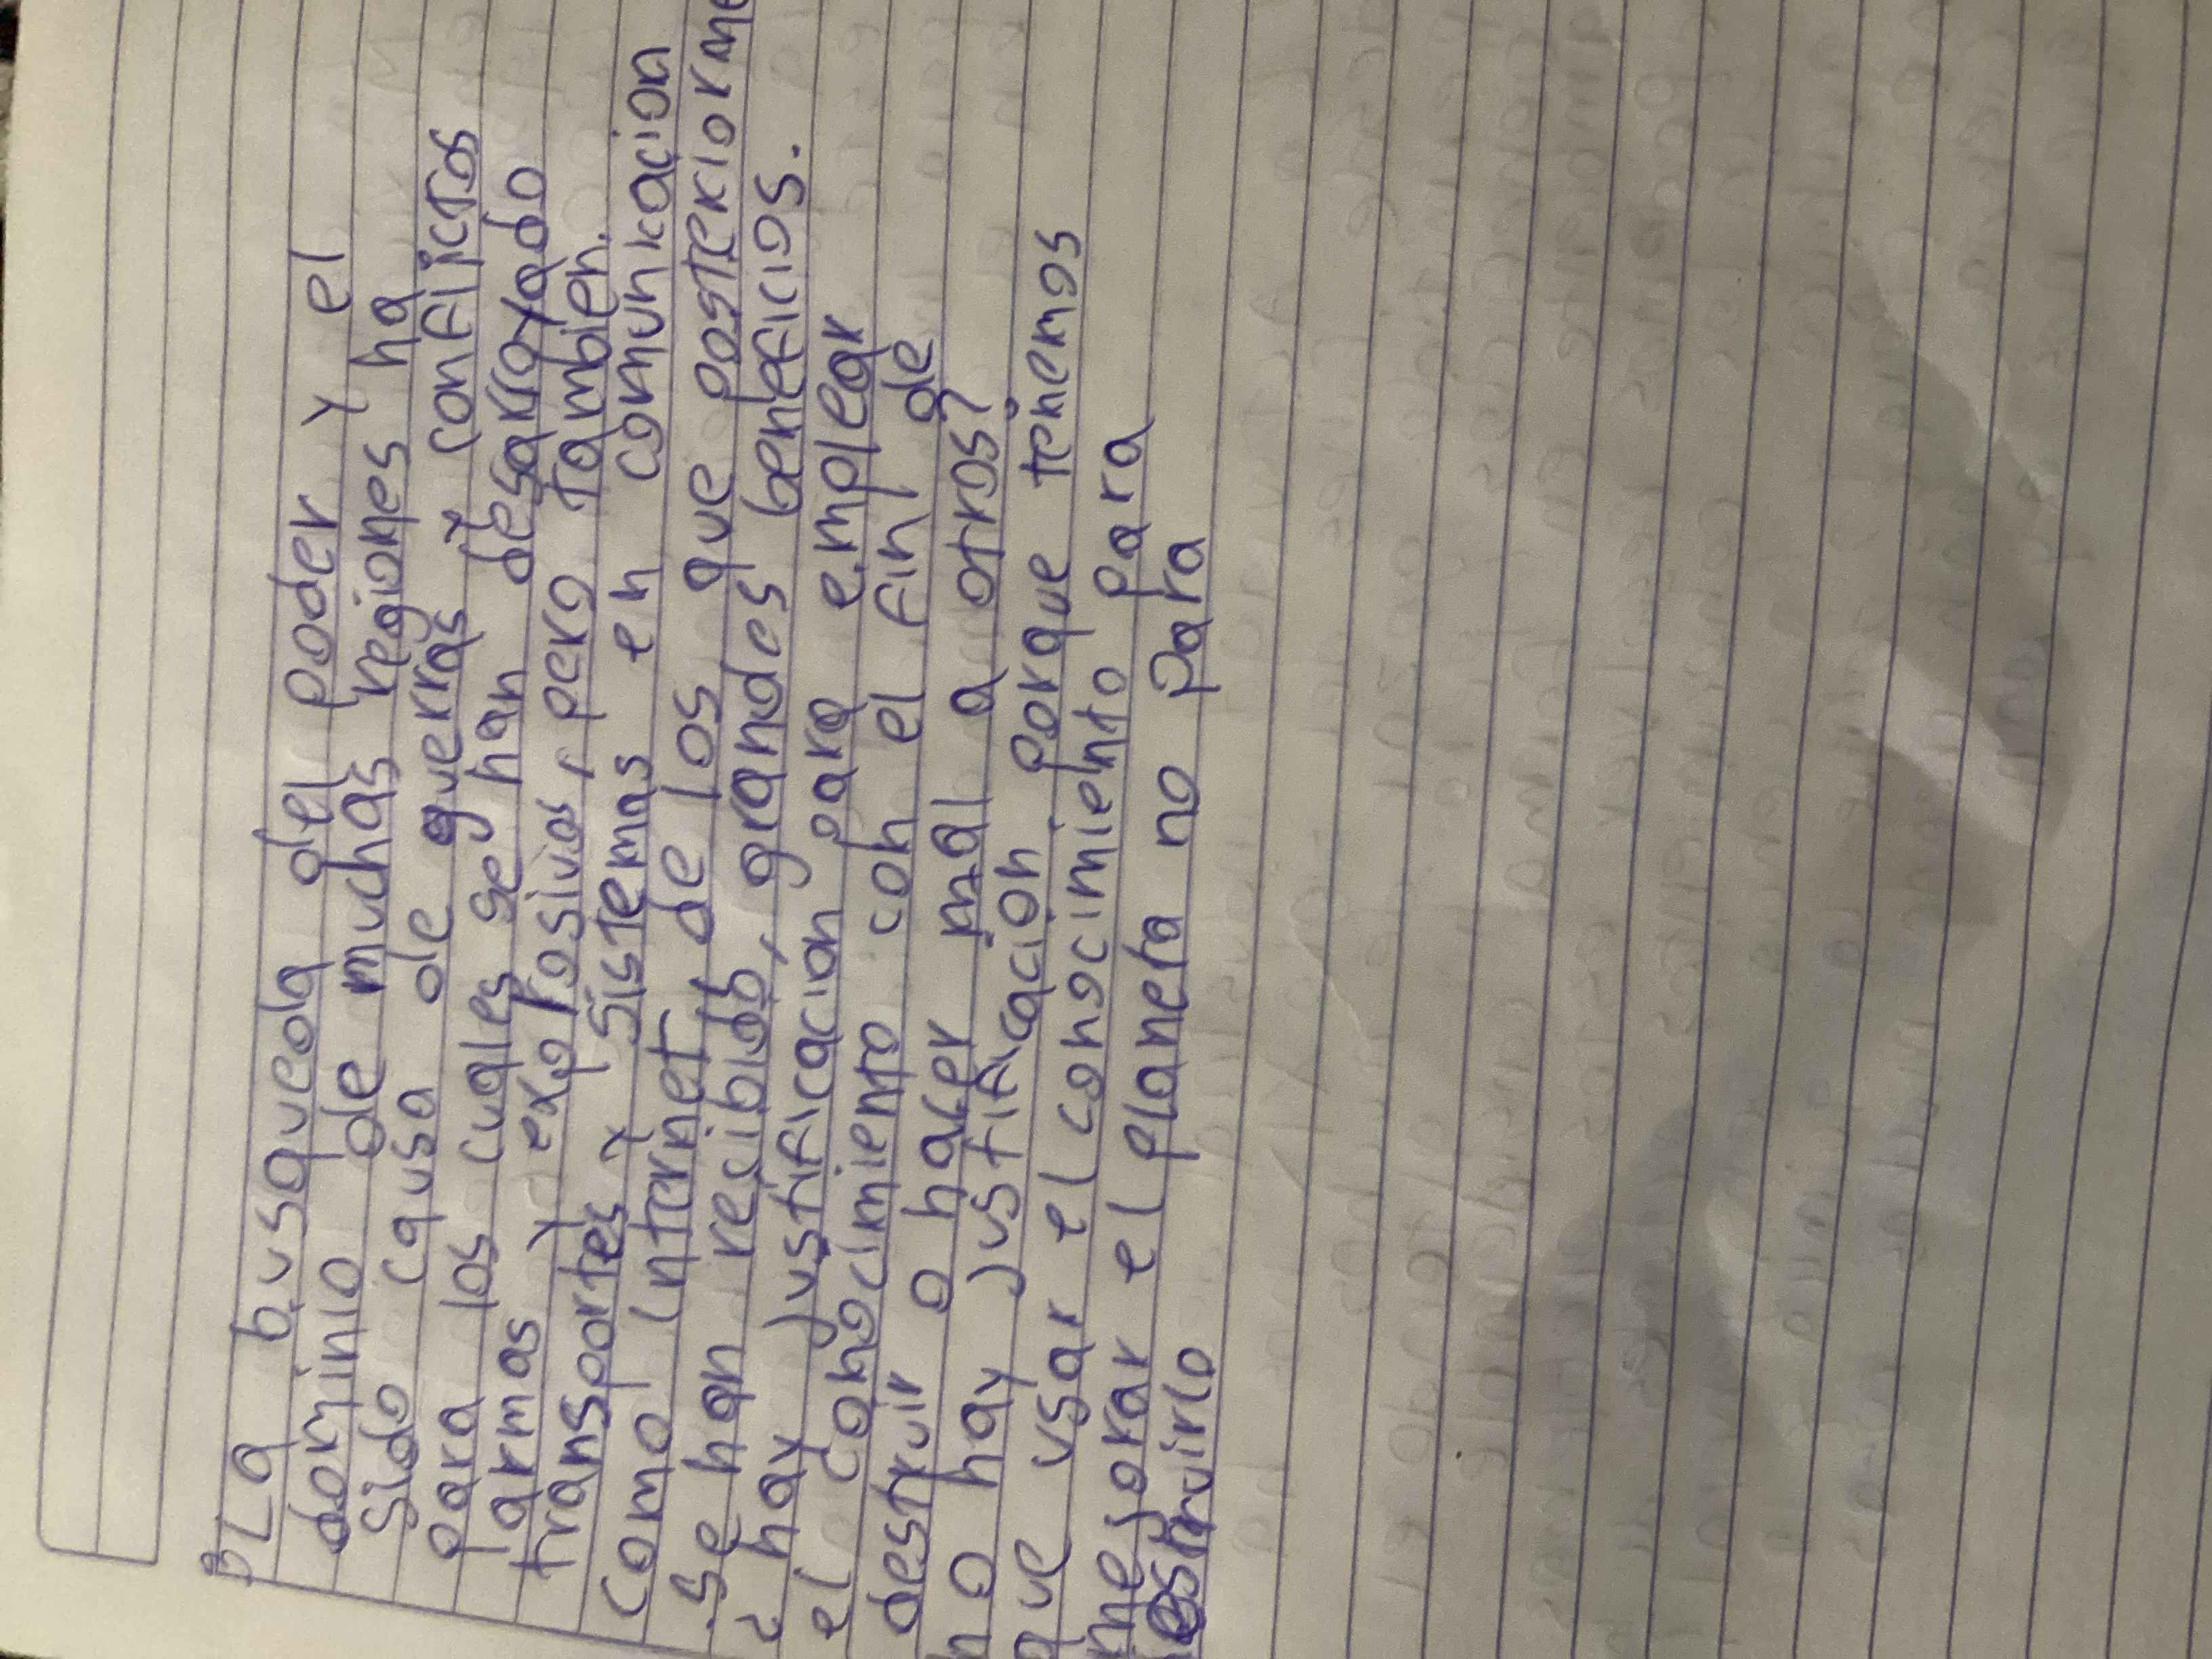 La busqueda del poder y el
dominio de muchas regiones ha
sido causa de guerras y conflictos
para los cuales se han desarroyado
armas y explosivos, pero tambien.
transportes y sistemas en comunicacion
como internet de los que posteriorme
se han recibido, grandes beneficios.
¿hay justificacion para emplear
el conocimiento con el fin de
destruir o hacer mal a otros?
no hay justificacion porque tenemos
que usar el conocimiento para
mejorar el planeta no para
destruirlo